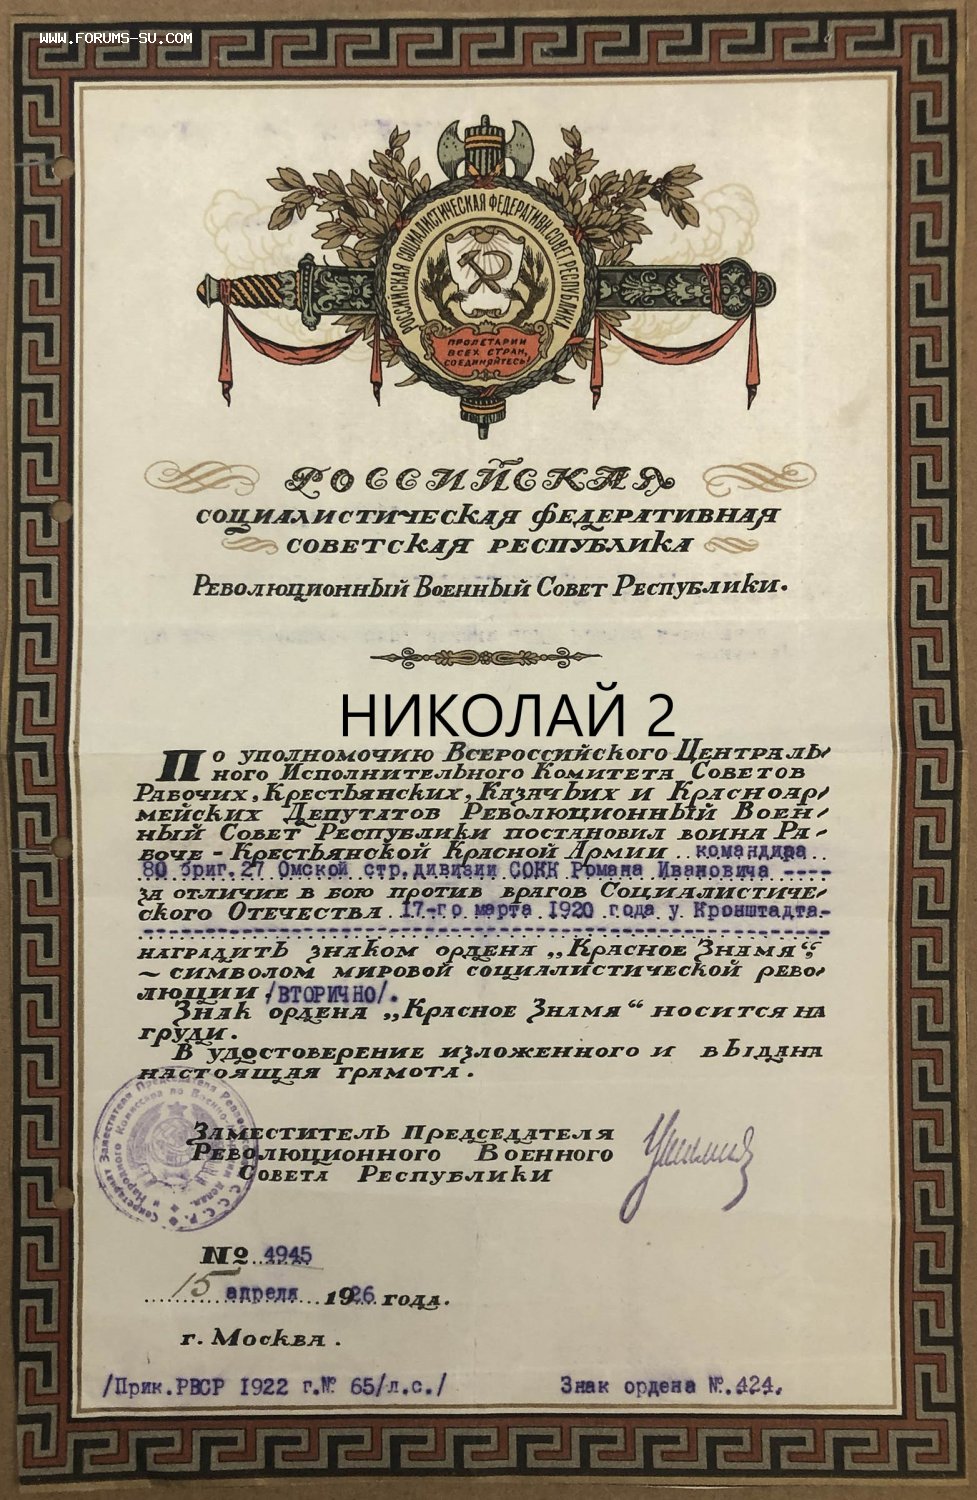 WWW.FORUMS-SU.COM
РОССИЙСКАЯ СОЦИАЛИСТИЧЕСКАЯ ФЕДЕРАТИВН. СОВЕТ. РЕСПУБЛИКИ
ПРОЛЕТАРИИ
ВСЕХ СТРАН,
СОЕДИНЯЙТЕСЬ!
РОССИЙСКАЯ
СОЦИАЛИСТИЧЕСКАЯ ФЕДЕРАТИВНАЯ
СОВЕТСКАЯ РЕСПУБЛИКА
РЕВОЛЮЦИОННЫЙ ВОЕННЫЙ СОВЕТ РЕСПУБЛИКИ.
НИКОЛАЙ 2
По уполномочию Всероссийского Централь-
ного Исполнительного Комитета Советов
Рабочих, Крестьянских, Казачьих и Красноар-
мейских Депутатов Революционный Воен-
ный Совет Республики постановил воина Ра-
боче-Крестьянской Красной Армии командира
80 бриг. 27 Омской стр. дивизии СОКК Романа Ивановича ----
за отличие в бою против врагов Социалистиче-
ского Отечества 17-го марта 1920 года у Кронштадта.-
наградить знаком ордена „Красное Знамя“
~ символом мировой социалистической рево-
люции /ВТОРИЧНО/.
Знак ордена „Красное Знамя“ носится на
груди.
В удостоверение изложенного и выдана
настоящая грамота.
Заместитель Председателя
Революционного Военного
Совета Республики
№ 4945
15 апреля 1926 года.
г. Москва.
/Прик. РВСР 1922 г. № 65/л.с./
Знак ордена №.424.